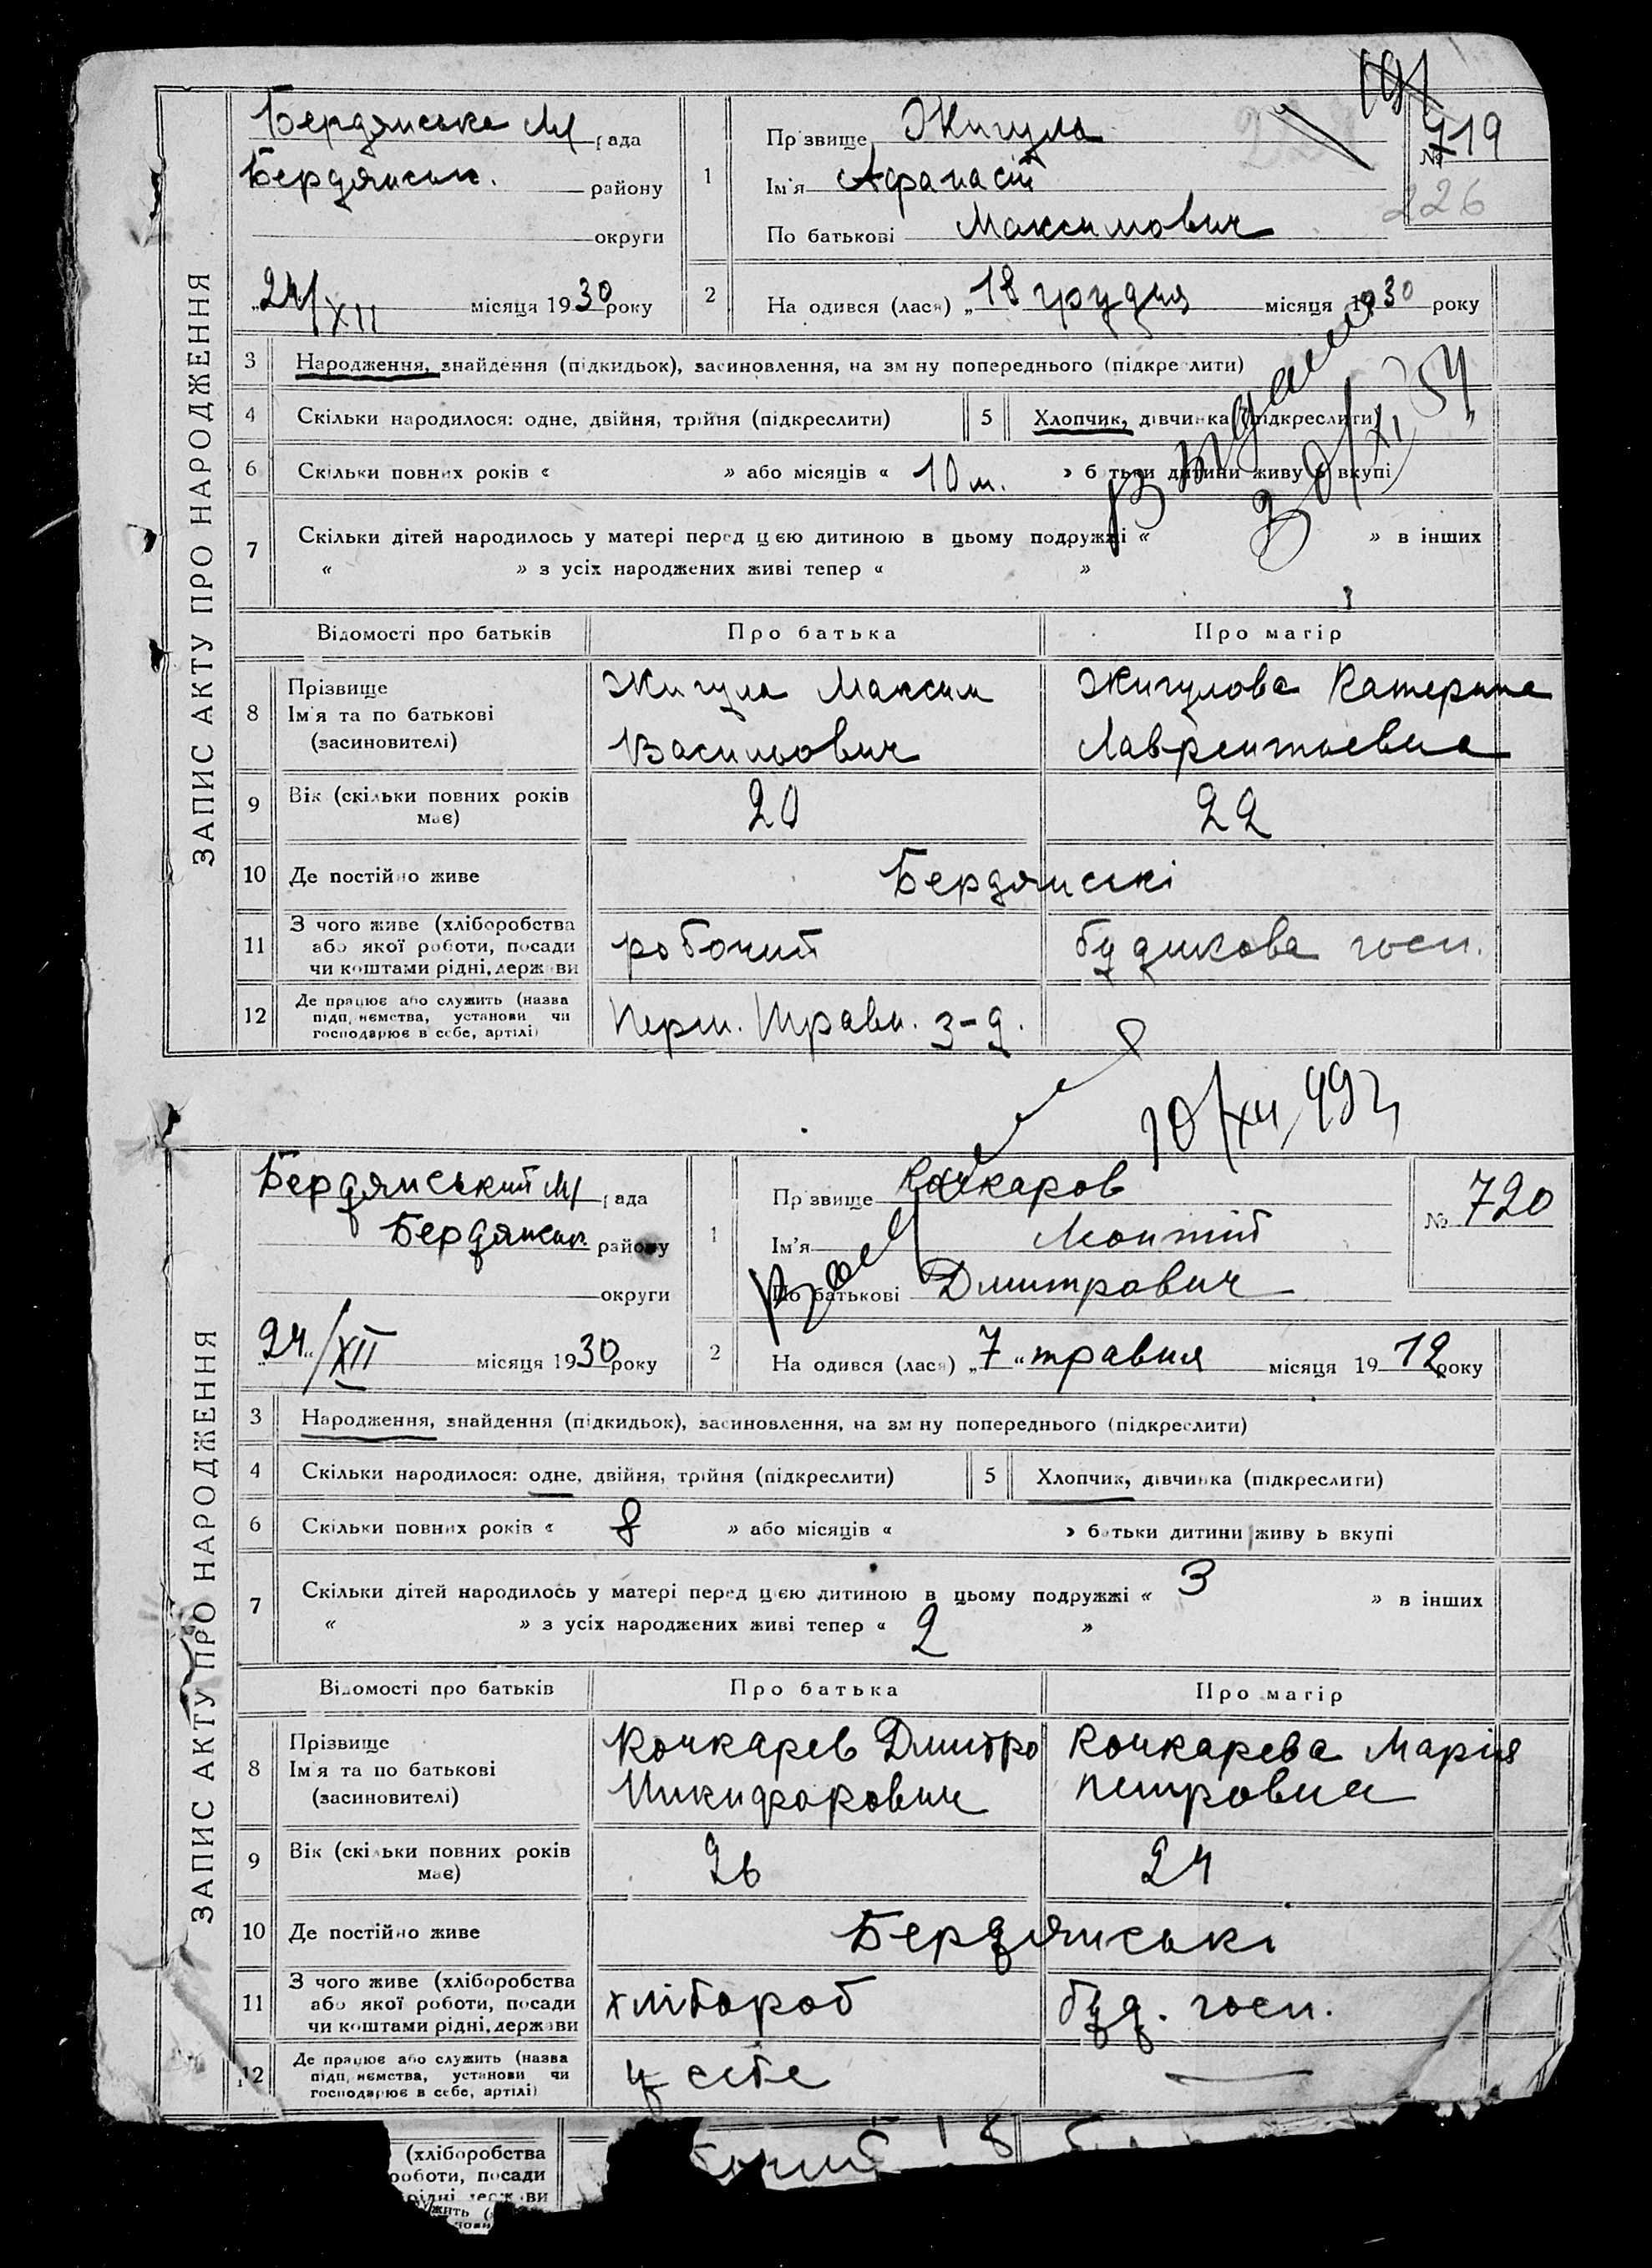 ЗАПИС АКТУ ПРО НАРОДЖЕННЯ
Бердянська М рада
Бердянськ. району
округи
24/XII місяця 1930 року
1
Прізвище Жигула
Ім'я Афанасій
По батькові Максимович
№ 719
226
2
На одився (лася) „18 грудня місяця 1930 року
3 Народження, знайдення (підкидьок), засиновлення, на зм ну попереднього (підкреслити)
4 Скільки народилося: одне, двійня, трійня (підкреслити)
5 Хлопчик, дівчинка (підкреслити)
6 Скільки повних років « » або місяців « 10 м. » батьки дитини живуть вкупі
7 Скільки дітей народилось у матері перед цією дитиною в цьому подружжі « » в інших
« » з усіх народжених живі тепер « »
30/XI 54
Відомості про батьків Про батька Про матір
8 Прізвище
Ім'я та по батькові
(засиновителі)
Жигула Максим
Васильович
Жигулова Катерина
Лаврентьевна
9 Вік (скільки повних років
має)
20 22
10 Де постійно живе Бердянські
11 З чого живе (хліборобства
або якої роботи, посади
чи коштами рідні, держави
робочий будикова госп.
12 Де працює або служить (назва
підп, нємства, установи чи
господарює в себе, артілі)
Перш. Травн. з-д.
10/XII 49г
ЗАПИС АКТУ ПРО НАРОДЖЕННЯ
Бердянський М рада
Бердянськ. району
округи
„24"/XII місяця 1930 року
1
Прізвище Кочкаров
Ім'я Леонтій
По батькові Дмитрович
№ 720
2
На одився (лася) „7" травня місяця 1912 року
3 Народження, знайдення (підкидьок), засиновлення, на зм ну попереднього (підкреслити)
4 Скільки народилося: одне, двійня, трійня (підкреслити)
5 Хлопчик, дівчинка (підкреслити)
6 Скільки повних років « 8 » або місяців « » батьки дитини живуть вкупі
7 Скільки дітей народилось у матері перед цією дитиною в цьому подружжі « 3 » в інших
« » з усіх народжених живі тепер « 2 »
Відомості про батьків Про батька Про матір
8 Прізвище
Ім'я та по батькові
(засиновителі)
Кочкарев Дмитро
Никифорович
Кочкарева Марія
Петровна
9 Вік (скільки повних років
має)
26 24
10 Де постійно живе Бердянські
11 З чого живе (хліборобства
або якої роботи, посади
чи коштами рідні, держави
хлібороб буд. госп.
12 Де працює або служить (назва
підп, нємства, установи чи
господарює в себе, артілі)
у себе —
(хліборобства
роботи, посади